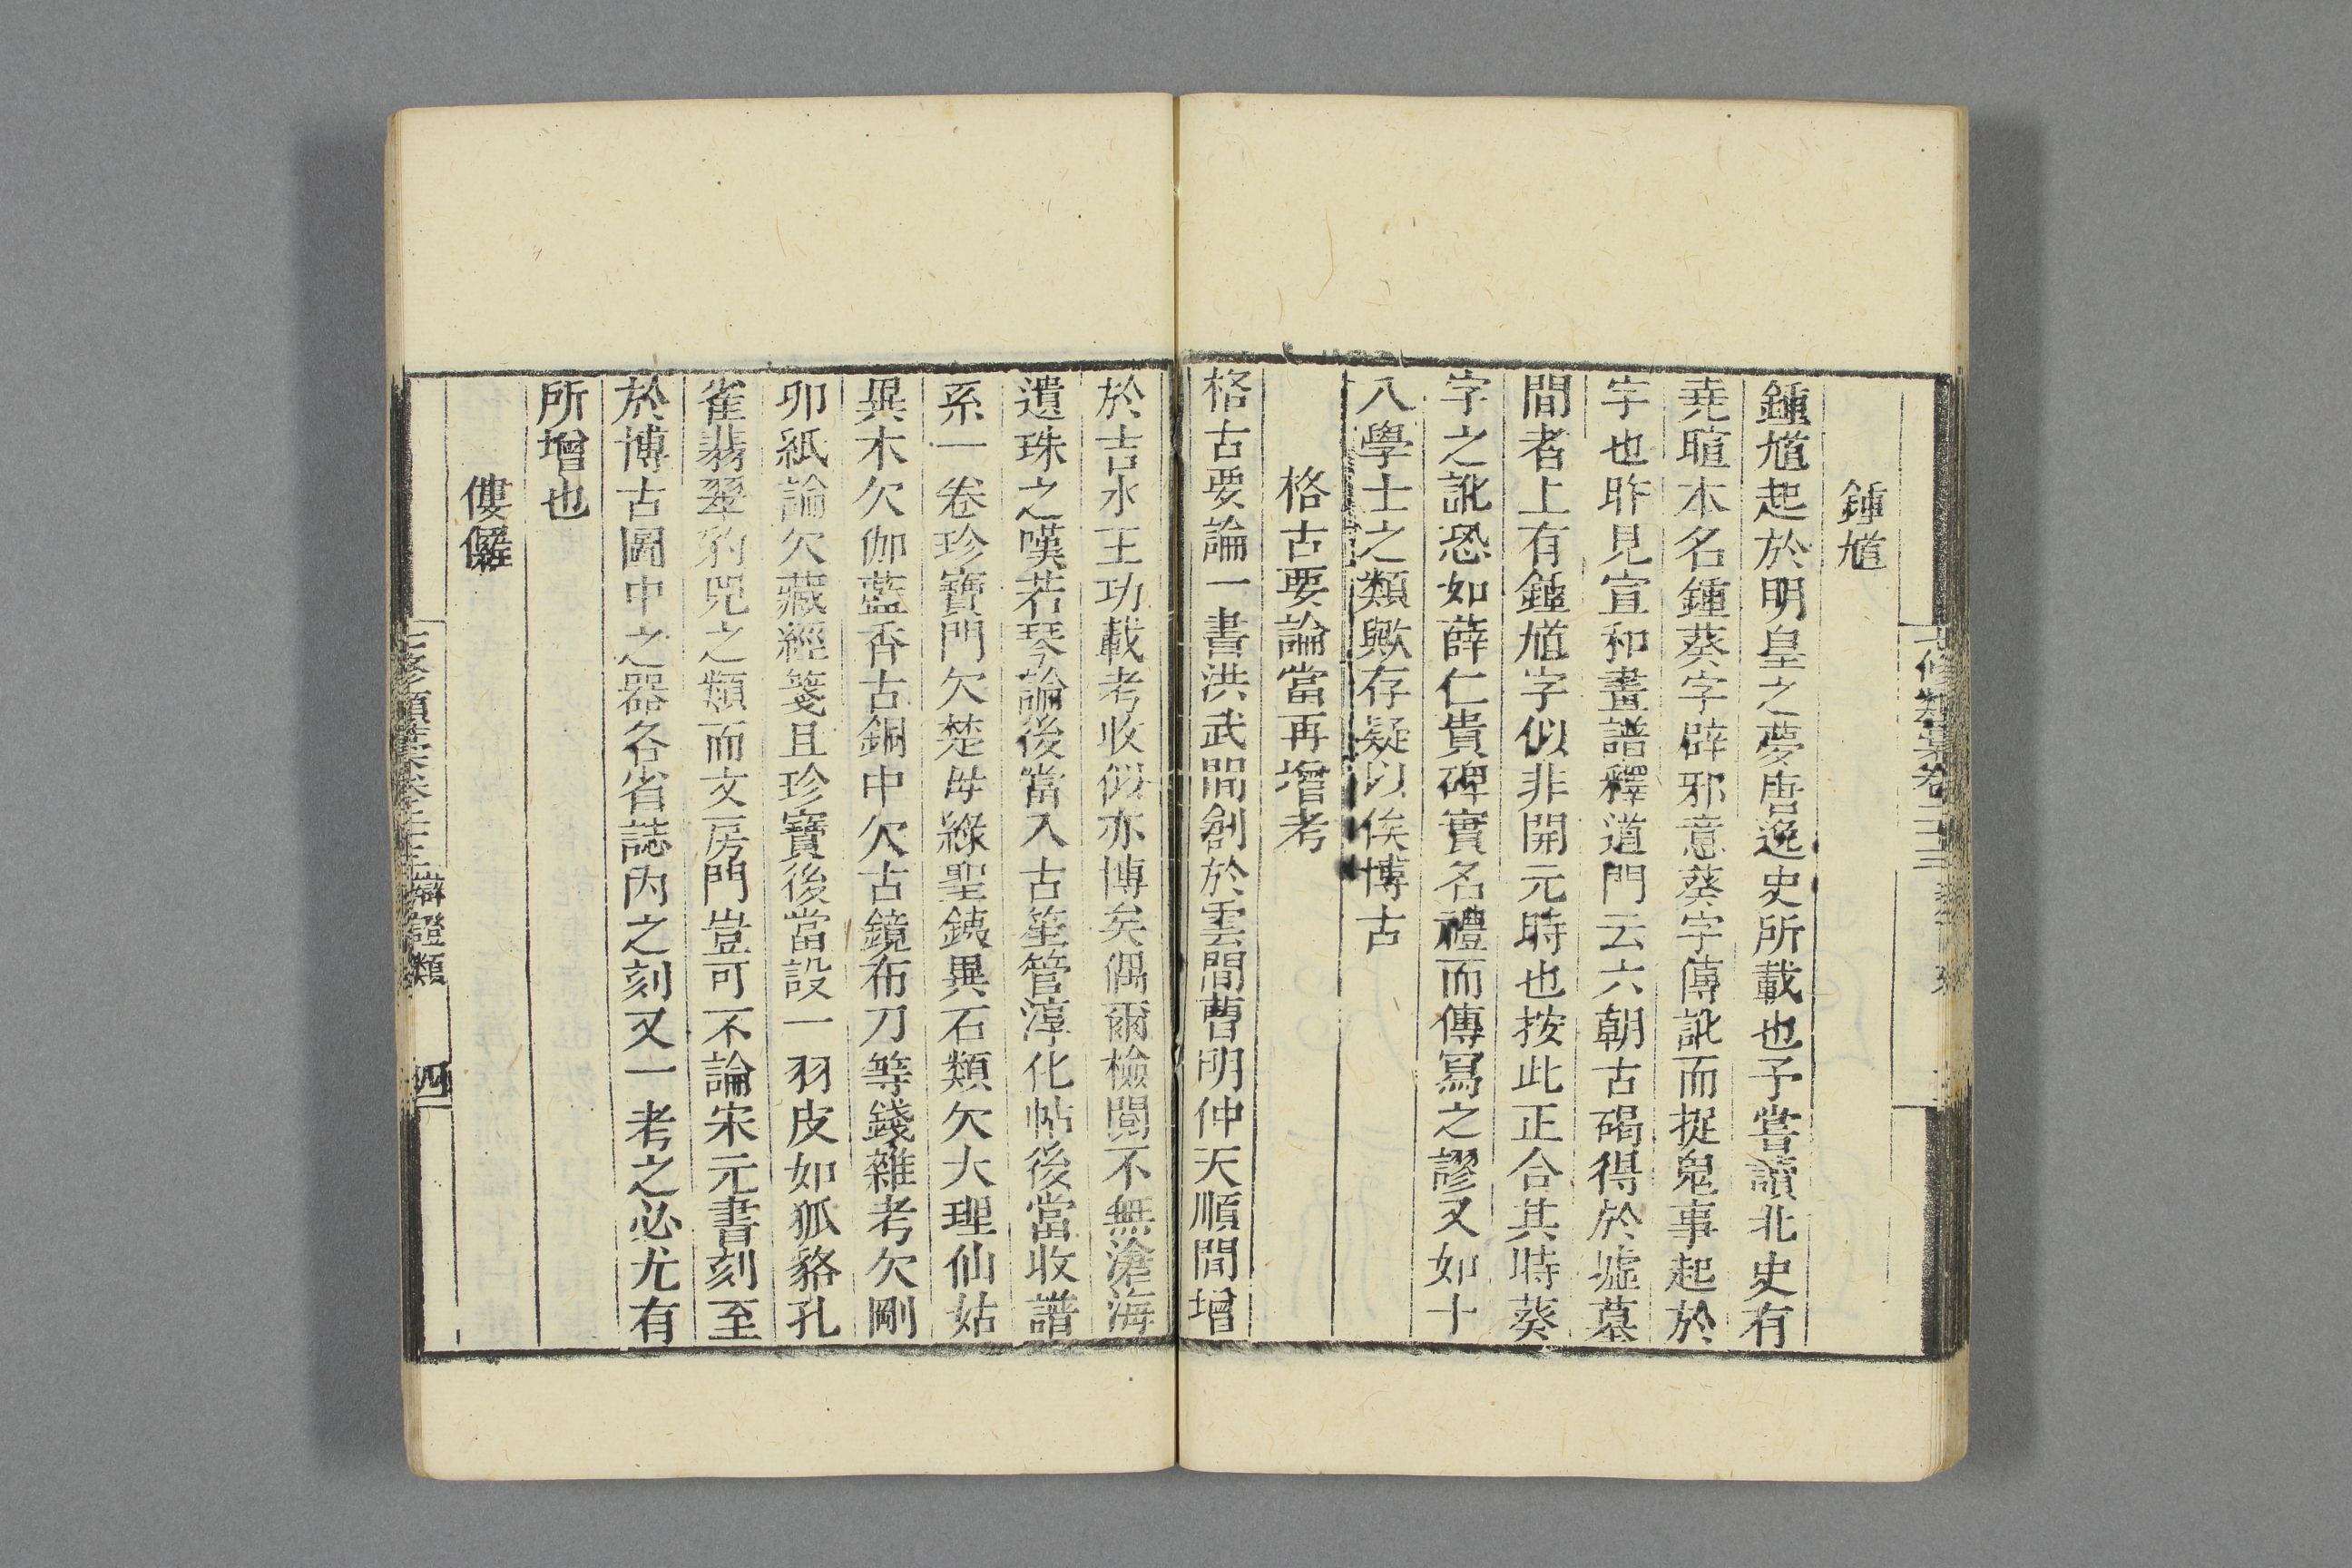 鍾馗
鍾馗起於明皇之夢唐逸史所載也予嘗讀北史有
堯暄本名鍾葵字辟邪意葵字傳訛而捉鬼事起於
字也昨見宣和畫譜釋道門云六朝古碣得於墟墓
間者上有鍾馗字似非開元時也按此正合其時葵
字之訛恐如薛仁貴碑實名禮而傳寫之謬又如十
八學士之類歟存疑以俟博古
格古要論當再增考
格古要論一書洪武間創於雲間曹明仲天順間增
於吉水王功載考收似亦博矣偶爾檢閱不無滄海
遺珠之嘆若琴論後當入古笙管淳化帖後當收譜
系一卷珍寶門欠楚母綠聖鐵異石類欠大理仙姑
異木欠伽藍香古銅中欠古鏡布刀等錢雜考欠剛
卯紙論欠藏經箋且珍寶後當設一羽皮如狐貉孔
雀翡翠豹兕之類而文房門豈可不論宋元書刻至
於博古圖中之器各省誌內之刻又一考之必尤有
所增也
僂儸
七修類藁卷二十三 辯證類 四